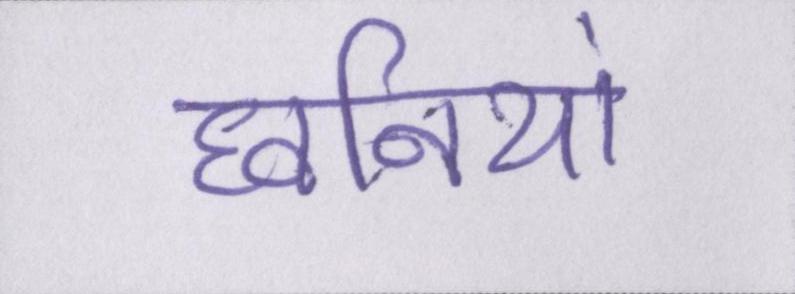 ध्वनियां